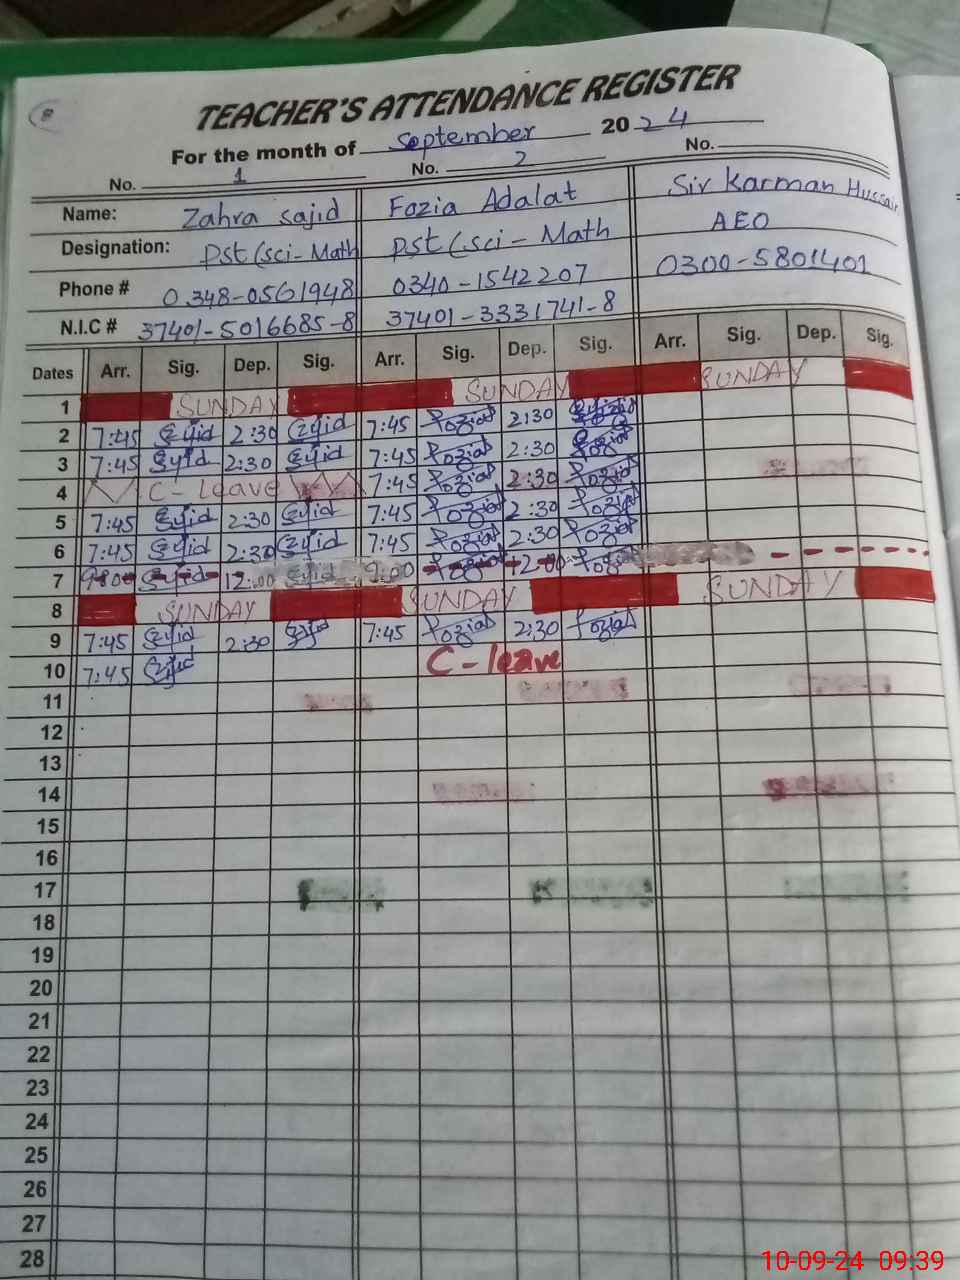 8
TEACHER'S ATTENDANCE REGISTER
For the month of September 2024
No. 1 No. 2 No.
Name: Zahra Sajid Fozia Adalat Sir Karman Hussain
Designation: PST (sci-Math PST (sci-Math AEO
Phone # 0348-0561948 0340-1542207 0300-5801401
N.I.C # 37401-5016685-8 37401-3331741-8
Dates Arr. Sig. Dep. Sig. Arr. Sig. Dep. Sig. Arr. Sig. Dep. Sig.
1 SUNDAY SUNDAY SUNDAY
2 7:45 2:30 7:45 Fozia 2:30
3 7:45 2:30 7:45 Fozia 2:30 Fozia
4 C-Leave 7:45 Fozia 2:30 Fozia
5 7:45 2:30 7:45 Fozia 2:30 Fozia
6 7:45 2:30 7:45 Fozia 2:30 Fozia
7 12:00 9:00 Fozia 12:00
8 SUNDAY SUNDAY SUNDAY
9 7:45 2:30 7:45 Fozia 2:30 Fozia
10 7:45 C-leave
11
12
13
14
15
16
17
18
19
20
21
22
23
24
25
26
27
28
10-09-24 09:39